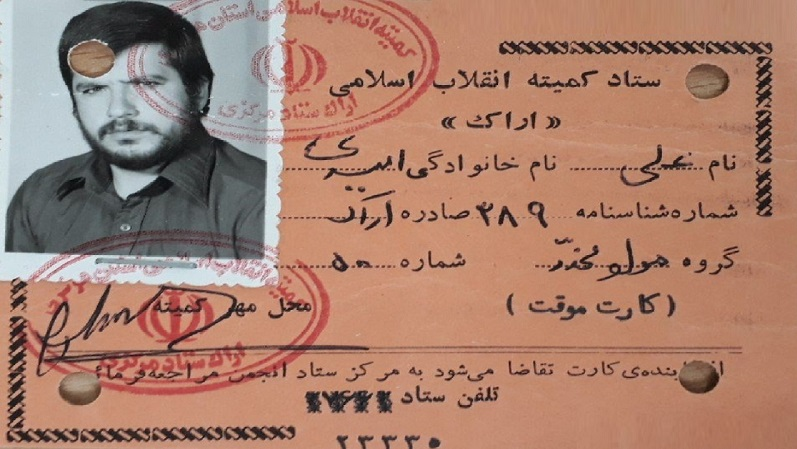 ستاد کمیته انقلاب اسلامی
« اراک »
نام علی نام خانوادگی امیری
شماره شناسنامه ۳۸۹ صادره اراک
گروه مواد مخدر شماره ۵۰
( کارت موقت )
محل مهر کمیته
یابنده‌ی کارت تقاضا می‌شود به مرکز ستاد انجمن مراجعه فرمائ
تلفن ستاد
۲۳۳۳۰
کمیته انقلاب اسلامی استان مرکزی
اراک ستاد مرکزی
کمیته انقلاب اسلامی استان مرکزی
اراک ستاد مرکزی